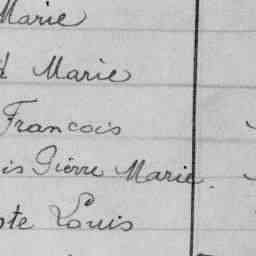 Marie
d Marie
Francois
is Pierre Marie.
te Louis